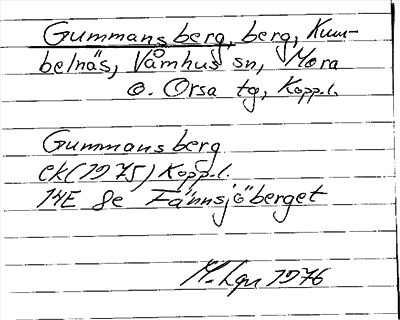 Gummansberg, berg, Kum-
belnäs, Våmhus sn, Mora
o. Orsa tg, Kopp.l.
Gummansberg
ek (1975) Kopp.l.
14E 8e Fännsjöberget
M. Lgn 1976